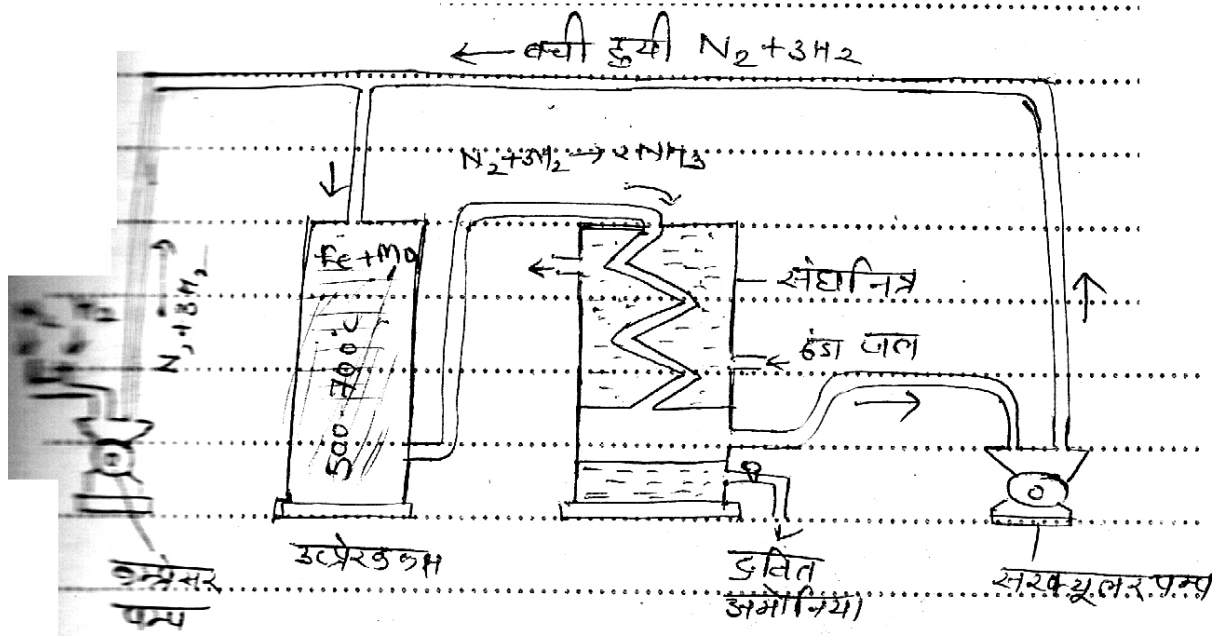 ← बची हुयी N₂+3H₂
N₂+3H₂ → 2NH₃
Fe+Mo
500-700°C
N₂+3H₂
संघनित्र
ठंडा जल
कम्प्रेसर
पम्प
उत्प्रेरक कक्ष
द्रवित
अमोनिया
सरक्यूलर पम्प